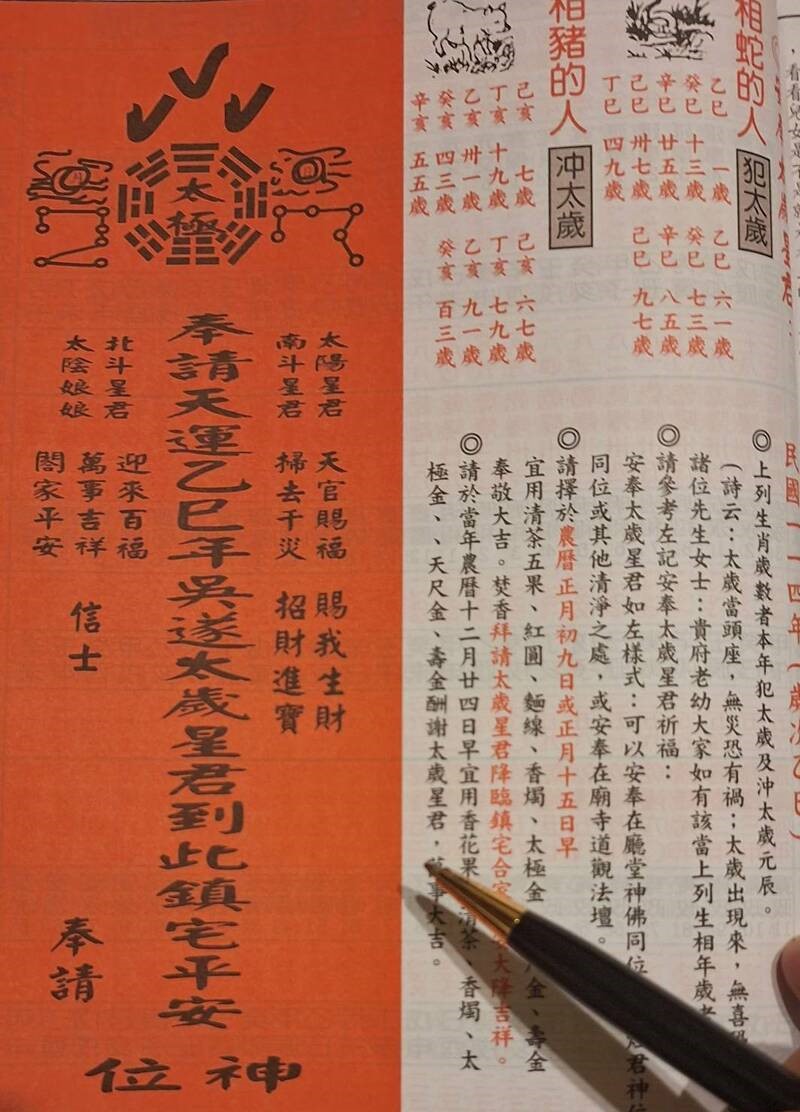 民國一一四年(歲次乙巳)
相蛇的人 犯太歲
乙巳 一歲 乙巳 六一歲
癸巳 十三歲 癸巳 七三歲
辛巳 廿五歲 辛巳 八五歲
己巳 卅七歲 己巳 九七歲
丁巳 四九歲
相豬的人 沖太歲
己亥 七歲 己亥 六七歲
丁亥 十九歲 丁亥 七九歲
乙亥 卅一歲 乙亥 九一歲
癸亥 四三歲 癸亥 百三歲
辛亥 五五歲
◎上列生肖歲數者本年犯太歲及沖太歲元辰。
(詩云:太歲當頭座,無災恐有禍;太歲出現來,無喜
諸位先生女士:貴府老幼大家如有該當上列生相年歲者
◎請參考左記安奉太歲星君祈福:
安奉太歲星君如左樣式:可以安奉在廳堂神佛同位 君神位
同位或其他清淨之處,或安奉在廟寺道觀法壇。
◎請擇於農曆正月初九日或正月十五日早
宜用清茶五果、紅圓、麵線、香燭、太極金 金、壽金
奉敬大吉。焚香拜請太歲星君降臨鎮宅合家 大降吉祥。
◎請於當年農曆十二月廿四日早宜用香花果 清茶、香燭、太
極金、、天尺金、壽金酬謝太歲星君,萬事大吉。
太極
太陽星君 天官賜福 賜我生財
南斗星君 掃去千災 招財進寶
奉請天運乙巳年吳遂太歲星君到此鎮宅平安
北斗星君 迎來百福
太陰娘娘 萬事吉祥 信士
閤家平安
奉請
神位